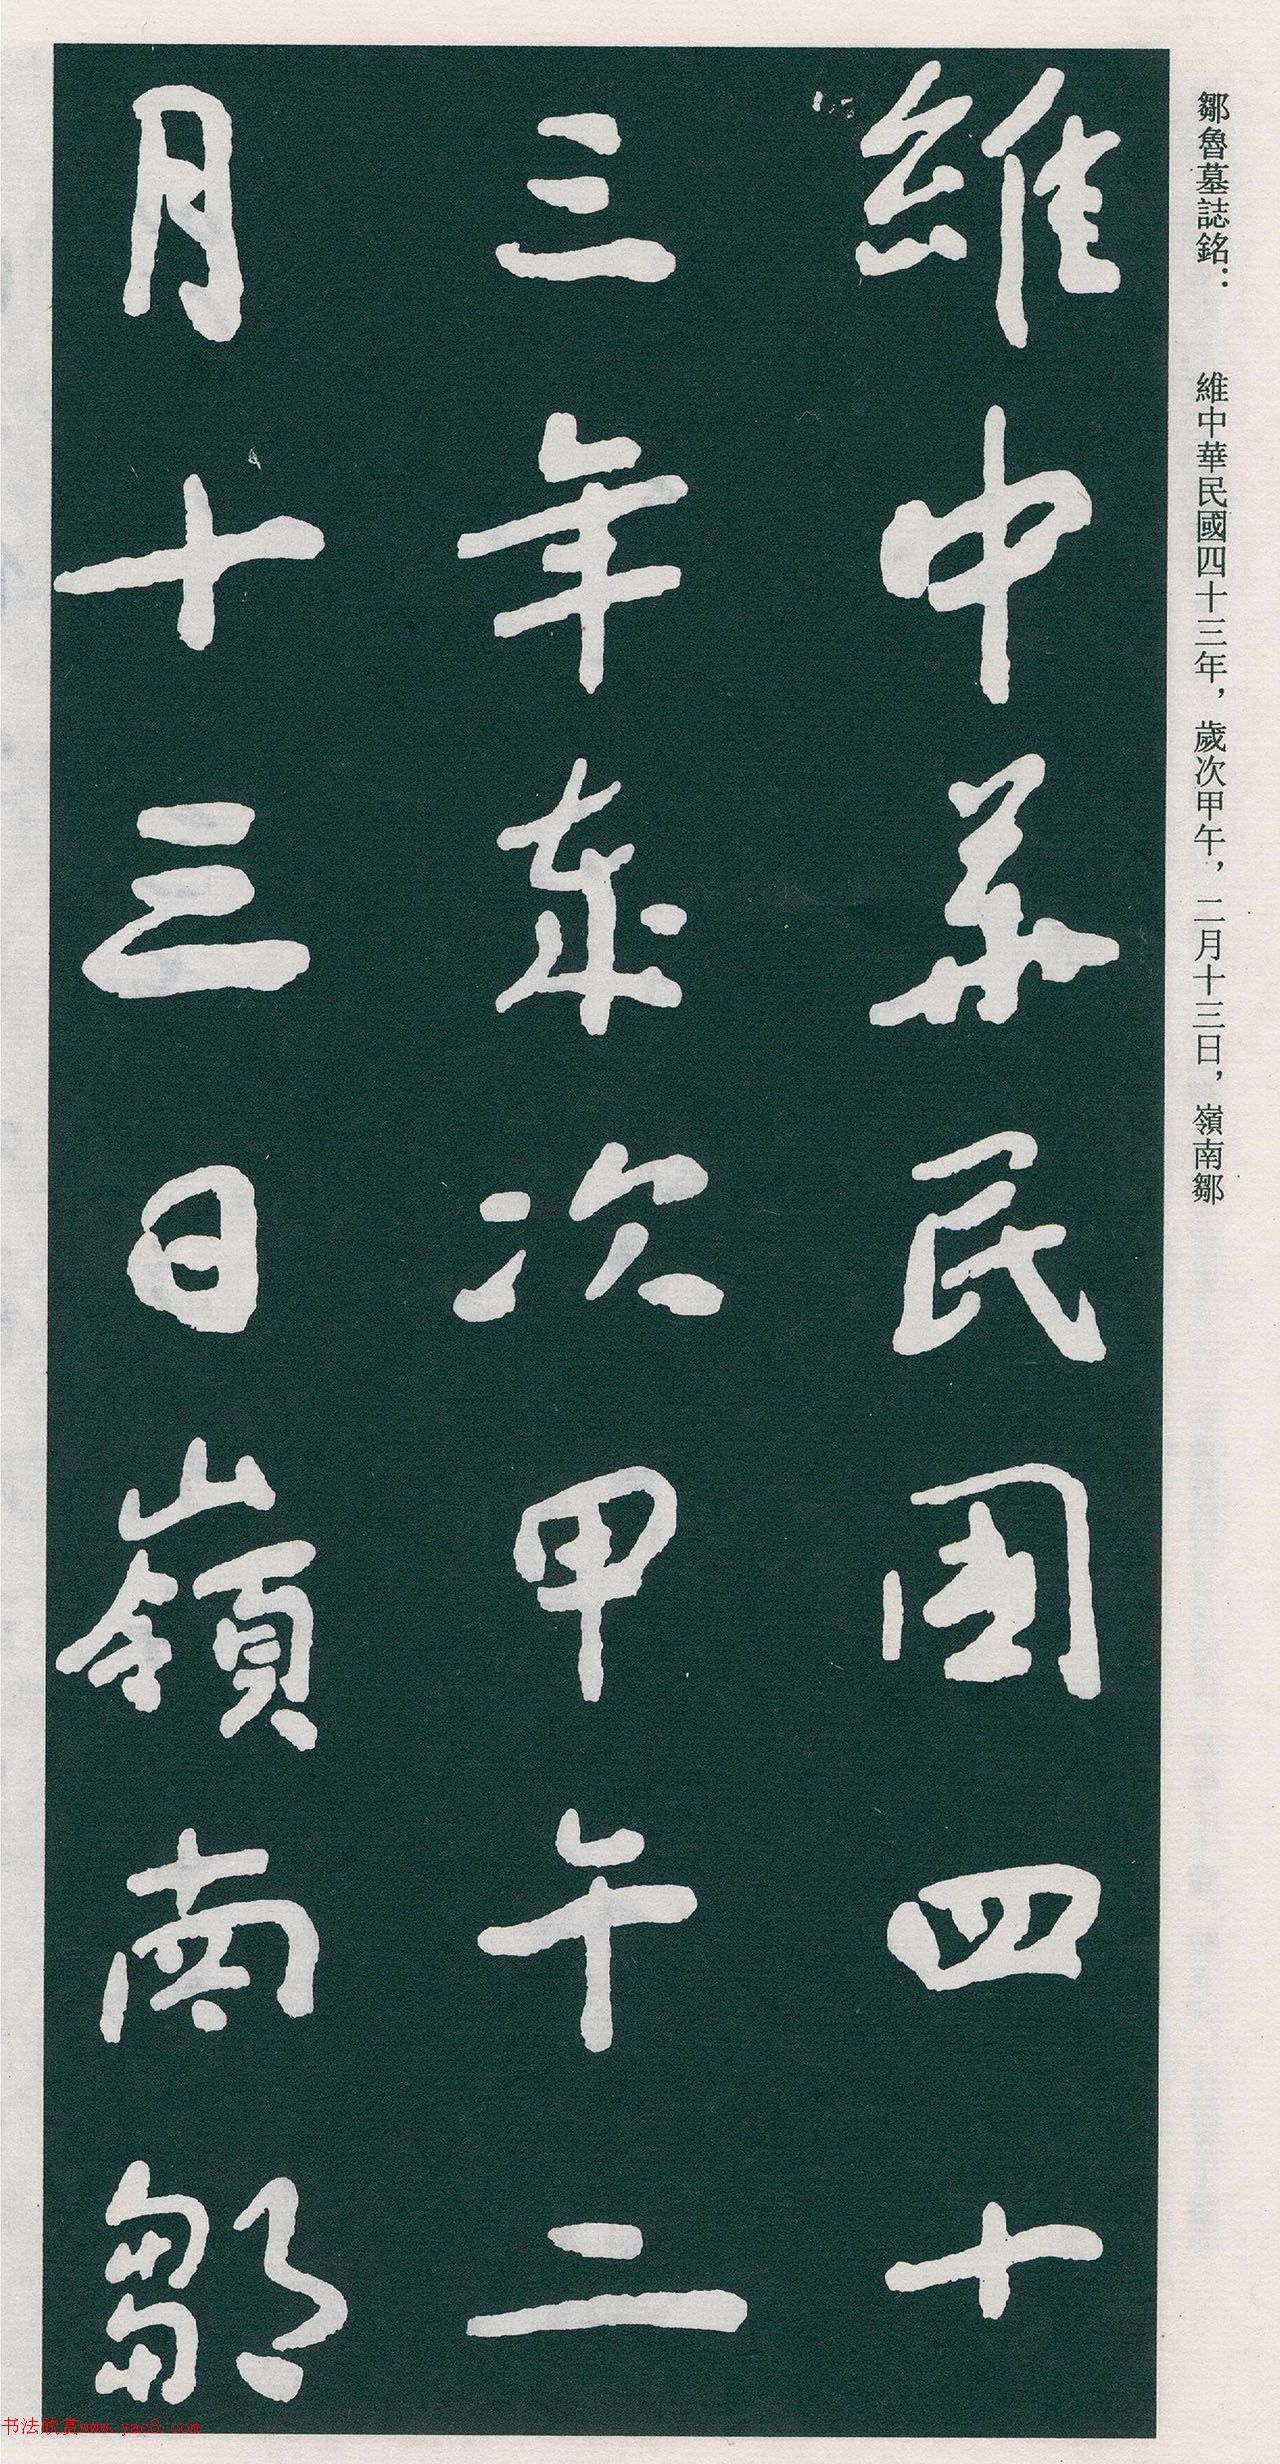 鄒魯墓誌銘： 維中華民國四十三年，歲次甲午，二月十三日，嶺南鄒
維中華民國四十
三年歲次甲午二
月十三日嶺南鄒
书法欣赏www.yac8.com